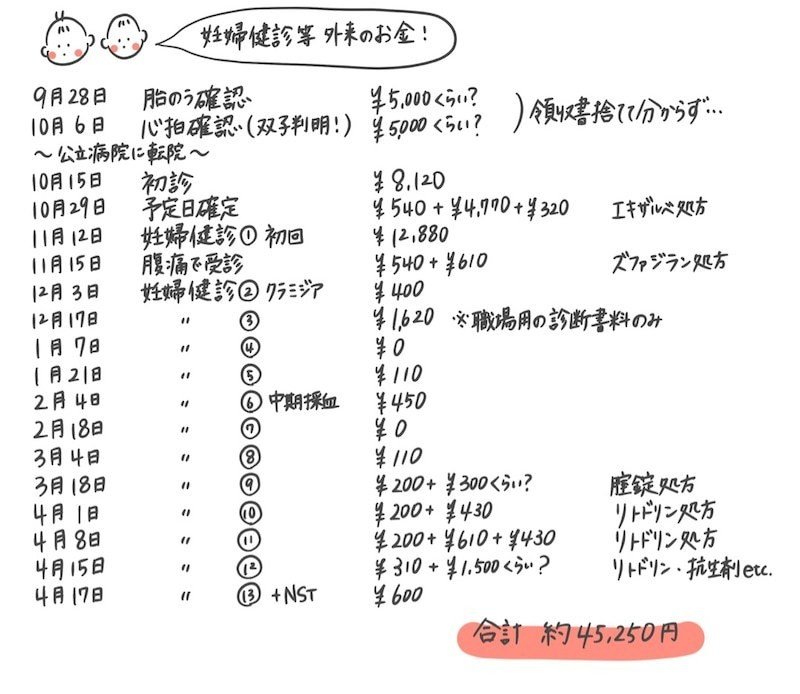 妊婦健診等 外来のお金！
9月28日 胎のう確認 ¥5,000くらい？
10月6日 心拍確認（双子判明！） ¥5,000くらい？ ）領収書捨てて分からず…
〜公立病院に転院〜
10月15日 初診 ¥8,120
10月29日 予定日確定 ¥540+¥4,770+¥320 エキザルベ処方
11月12日 妊婦健診① 初回 ¥12,880
11月15日 腹痛で受診 ¥540+¥610 ズファジラン処方
12月3日 妊婦健診② クラミジア ¥400
12月17日 〃 ③ ¥1,620 ※職場用の診断書料のみ
1月7日 〃 ④ ¥0
1月21日 〃 ⑤ ¥110
2月4日 〃 ⑥ 中期採血 ¥450
2月18日 〃 ⑦ ¥0
3月4日 〃 ⑧ ¥110
3月18日 〃 ⑨ ¥200+¥300くらい？ 腟錠処方
4月1日 〃 ⑩ ¥200+¥430 リトドリン処方
4月8日 〃 ⑪ ¥200+¥610+¥430 リトドリン処方
4月15日 〃 ⑫ ¥310+¥1,500くらい？ リトドリン・抗生剤etc.
4月17日 〃 ⑬ +NST ¥600
合計 約45,250円